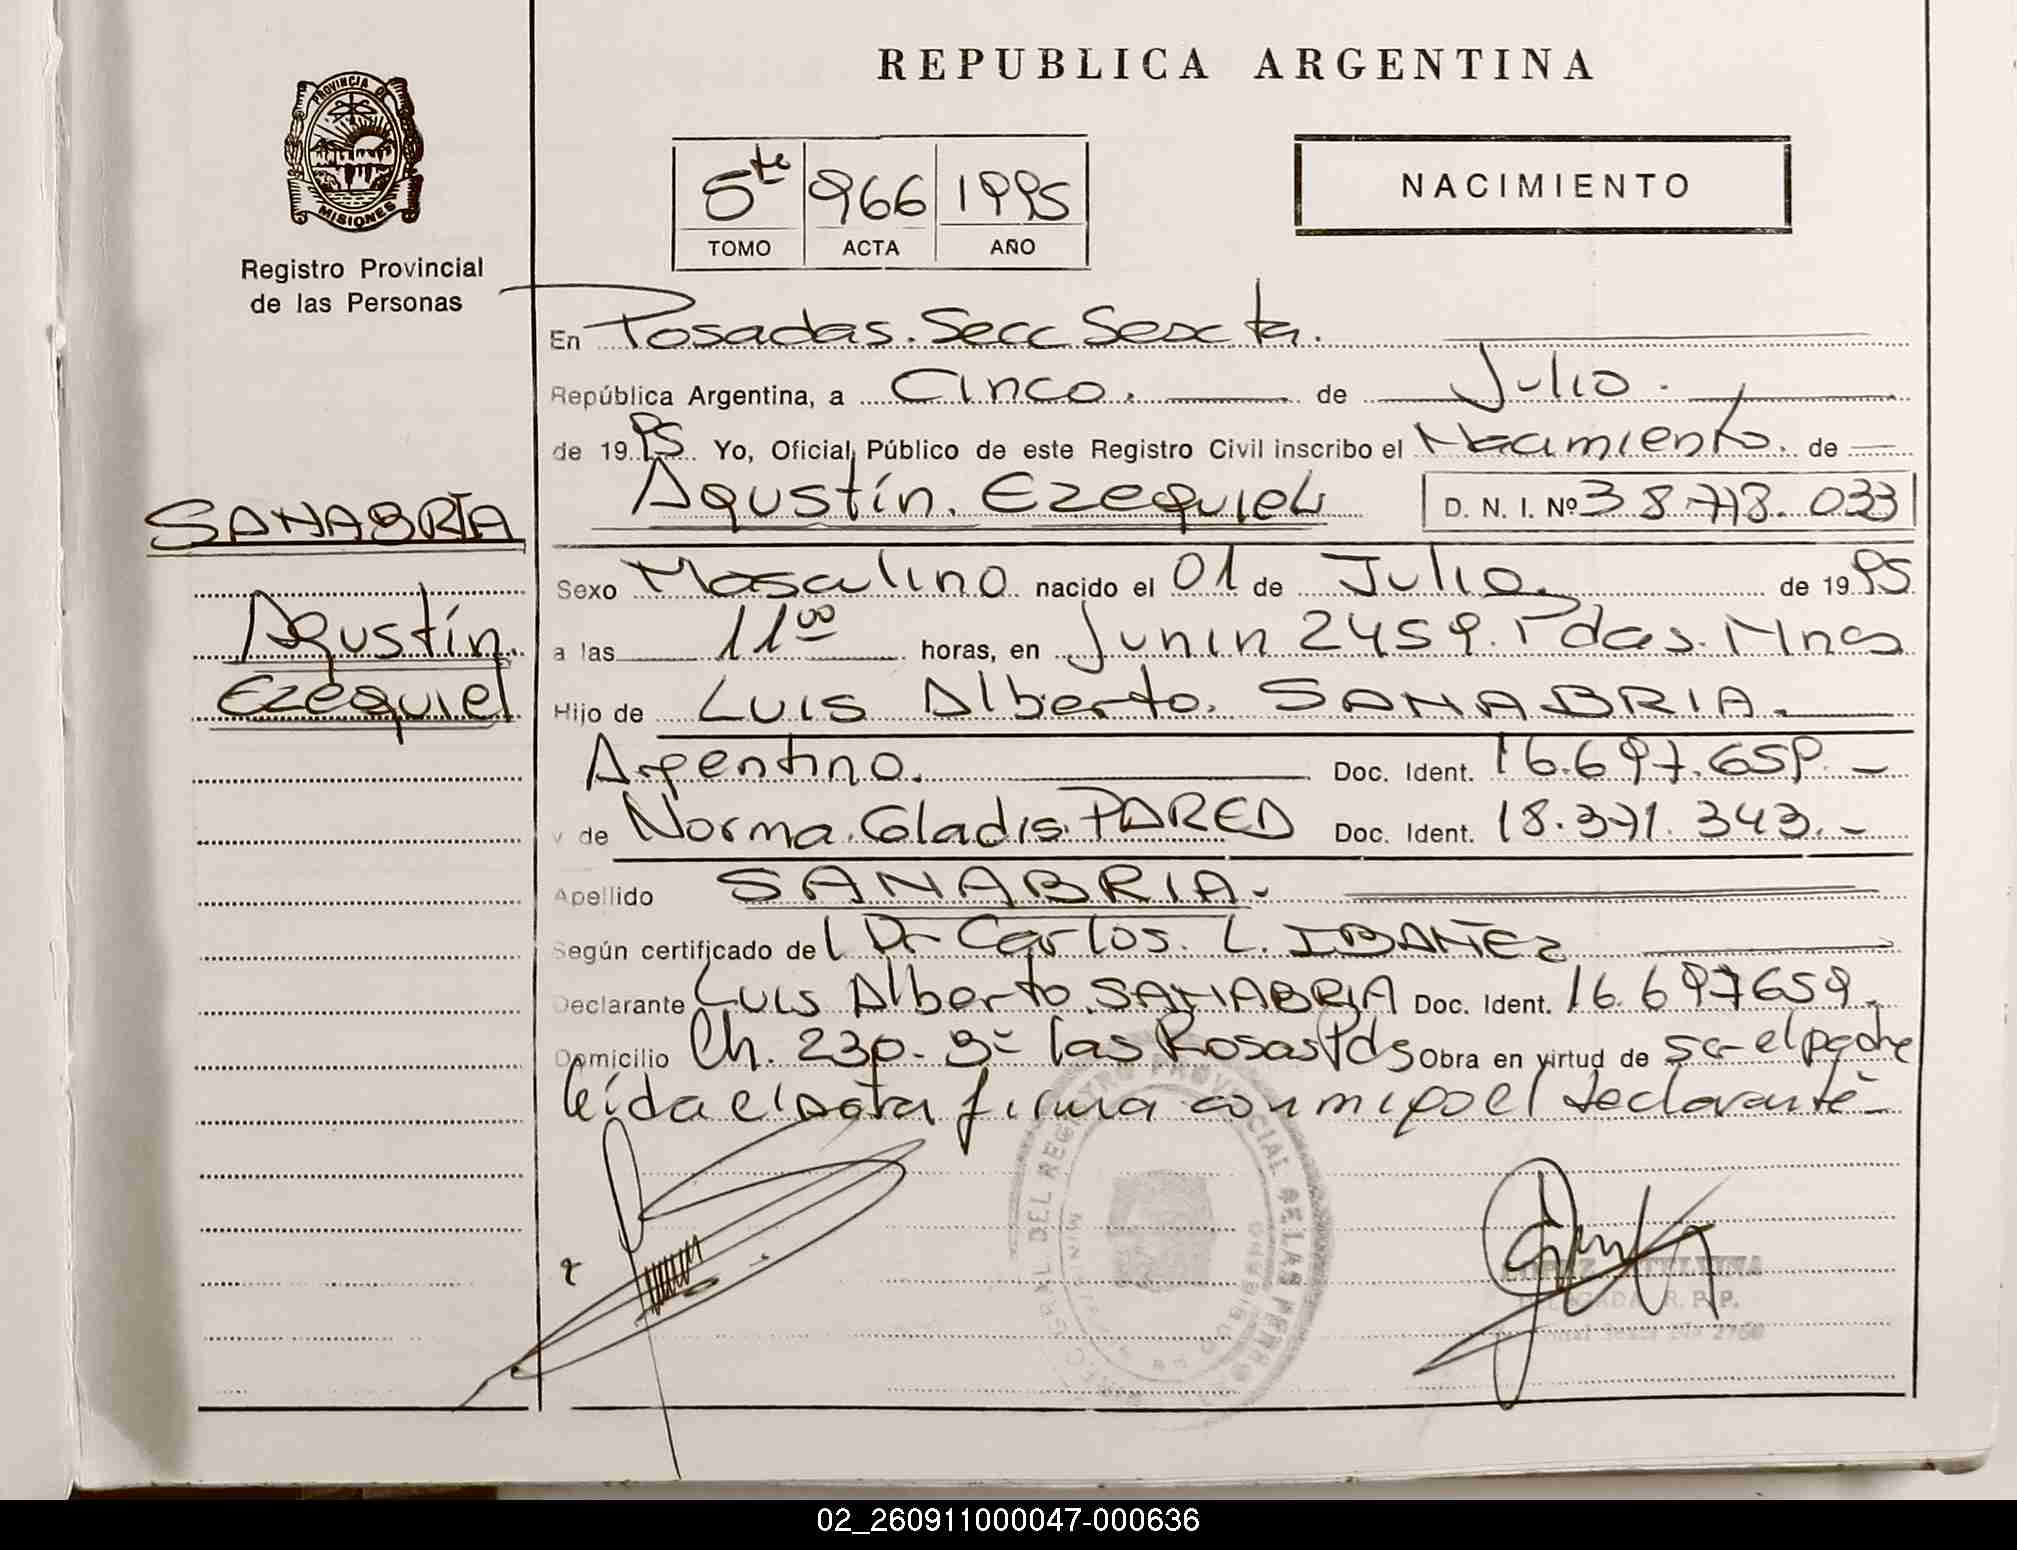 REPUBLICA ARGENTINA
PROVINCIA DE
MISIONES
Registro Provincial
de las Personas
5to 966 1995
TOMO ACTA AÑO
NACIMIENTO
En Posadas. Secc Sexta.
República Argentina, a Cinco. de Julio.
de 1995 Yo, Oficial Público de este Registro Civil inscribo el Nacimiento. de
Agustín. Ezequiel D. N. I. Nº 38.778.033
SANABRIA
Sexo Masculino nacido el 01 de Julio. de 1995
Agustín.
a las 11 00 horas, en Junin 2459. Pdas. Mnes
Ezequiel
Hijo de Luis Alberto. SANABRIA.
Argentino. Doc. Ident. 16.697.659.-
y de Norma. Gladis. PARED Doc. Ident. 18.371.343.-
Apellido SANABRIA.
Según certificado del Dr Carlos. L. IBAÑEZ
Declarante Luis Alberto. SANABRIA Doc. Ident. 16.697659.
Domicilio Ch. 230. Bº las Rosas Pds Obra en virtud de ser el padre
leída el acta firma conmigo el declarante
DEL REGISTRO PROVINCIAL DE LAS PERSO
LOPEZ
DELEGADA R. P. P.